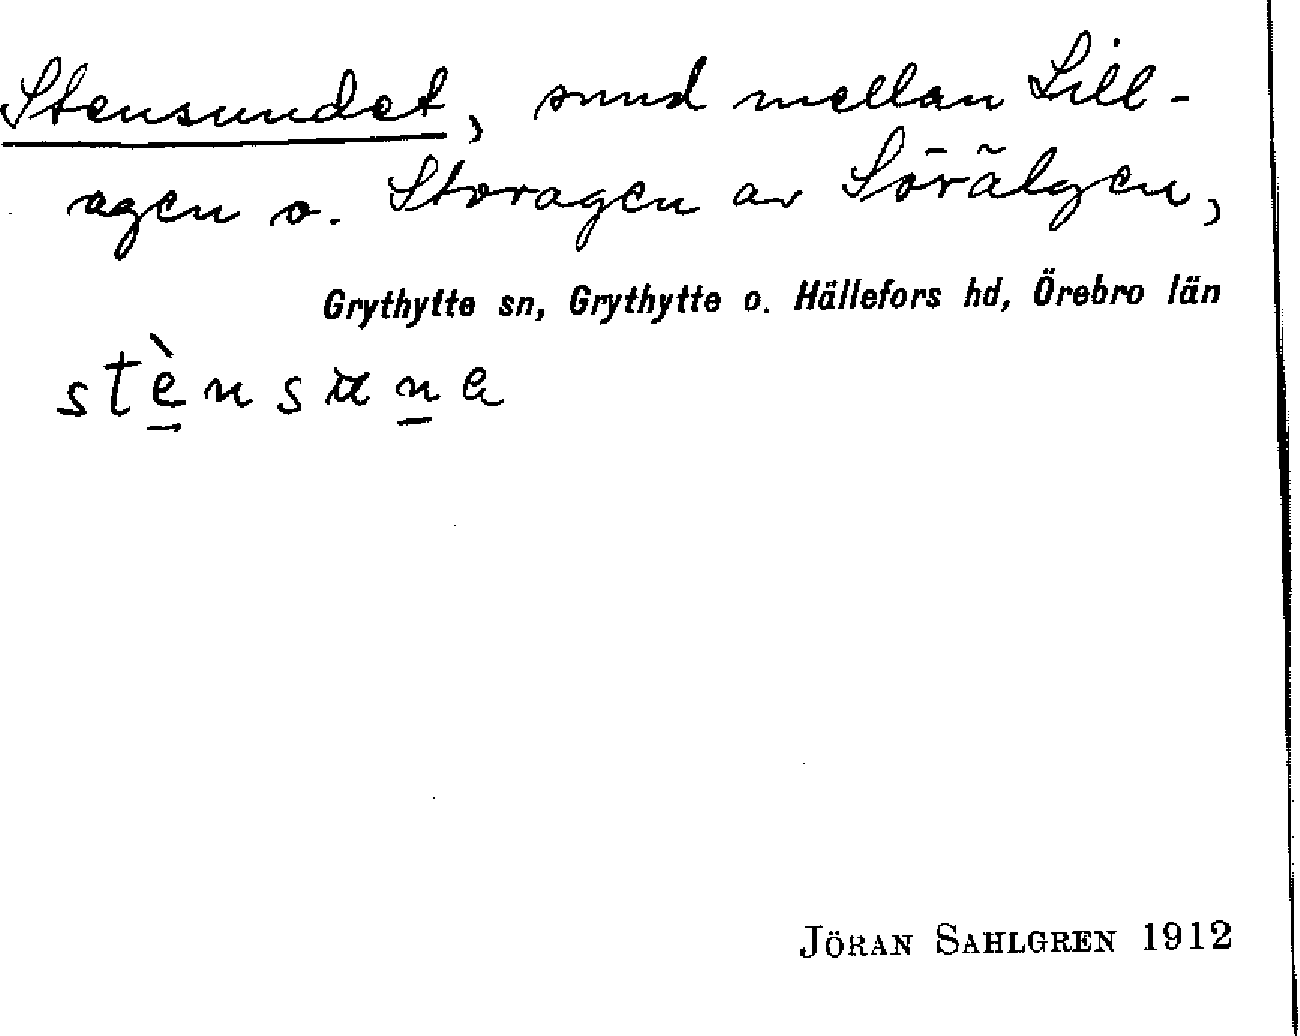 Stensundet, sund mellan Lill-
agen o. Storagen av Sörälgen,
Grythytte sn, Grythytte o. Hällefors hd, Örebro län
JÖRAN SAHLGREN 1912